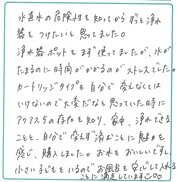 水道水の危険性を知ってからずっと浄水
器をつけたいと思ってました。
浄水器ポットをまず使ってましたが、水が
たまるのに時間がかかるのがストレスでした。
カートリッジタイプも自分で変えなくては
いけないので大変だなと思っていた時に
アクアスの存在を知り、家中、浄水できる
ことと、自分で変えず済むことに魅力を
感じ、購入しました。お水もおいしいですし、
小さい子どももいるのでお風呂も安心して入れる
ことに満足しています